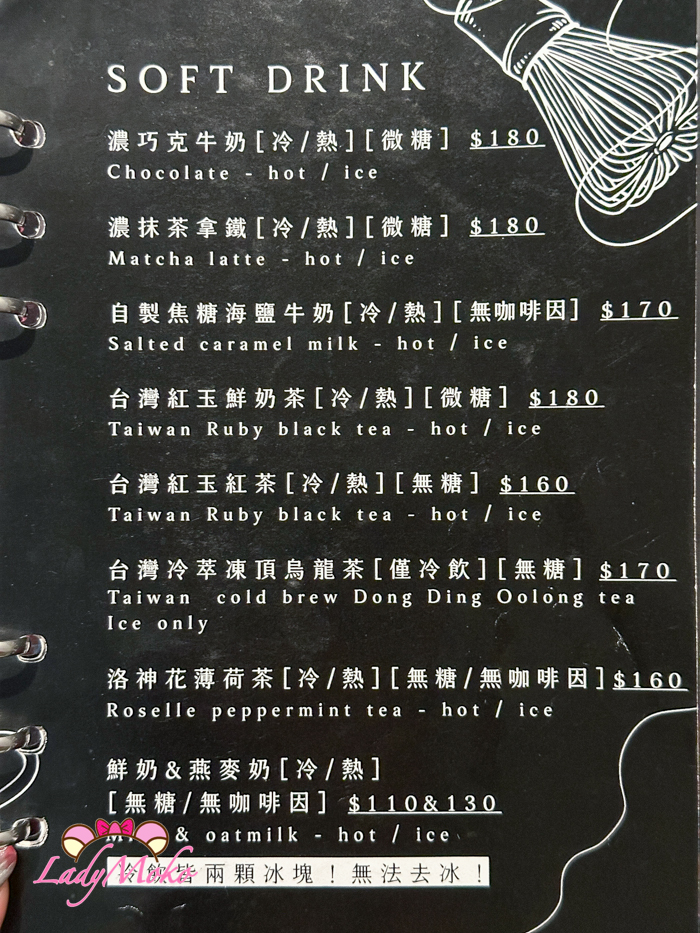 SOFT DRINK
濃巧克牛奶[冷/熱][微糖] $180
Chocolate - hot / ice
濃抹茶拿鐵[冷/熱][微糖] $180
Matcha latte - hot / ice
自製焦糖海鹽牛奶[冷/熱][無咖啡因] $170
Salted caramel milk - hot / ice
台灣紅玉鮮奶茶[冷/熱][微糖] $180
Taiwan Ruby black tea - hot / ice
台灣紅玉紅茶[冷/熱][無糖] $160
Taiwan Ruby black tea - hot / ice
台灣冷萃凍頂烏龍茶[僅冷飲][無糖] $170
Taiwan cold brew Dong Ding Oolong tea
Ice only
洛神花薄荷茶[冷/熱][無糖/無咖啡因] $160
Roselle peppermint tea - hot / ice
鮮奶&燕麥奶[冷/熱]
[無糖/無咖啡因] $110&130
& oatmilk - hot / ice
冷飲皆兩顆冰塊！無法去冰！
LadyMoko